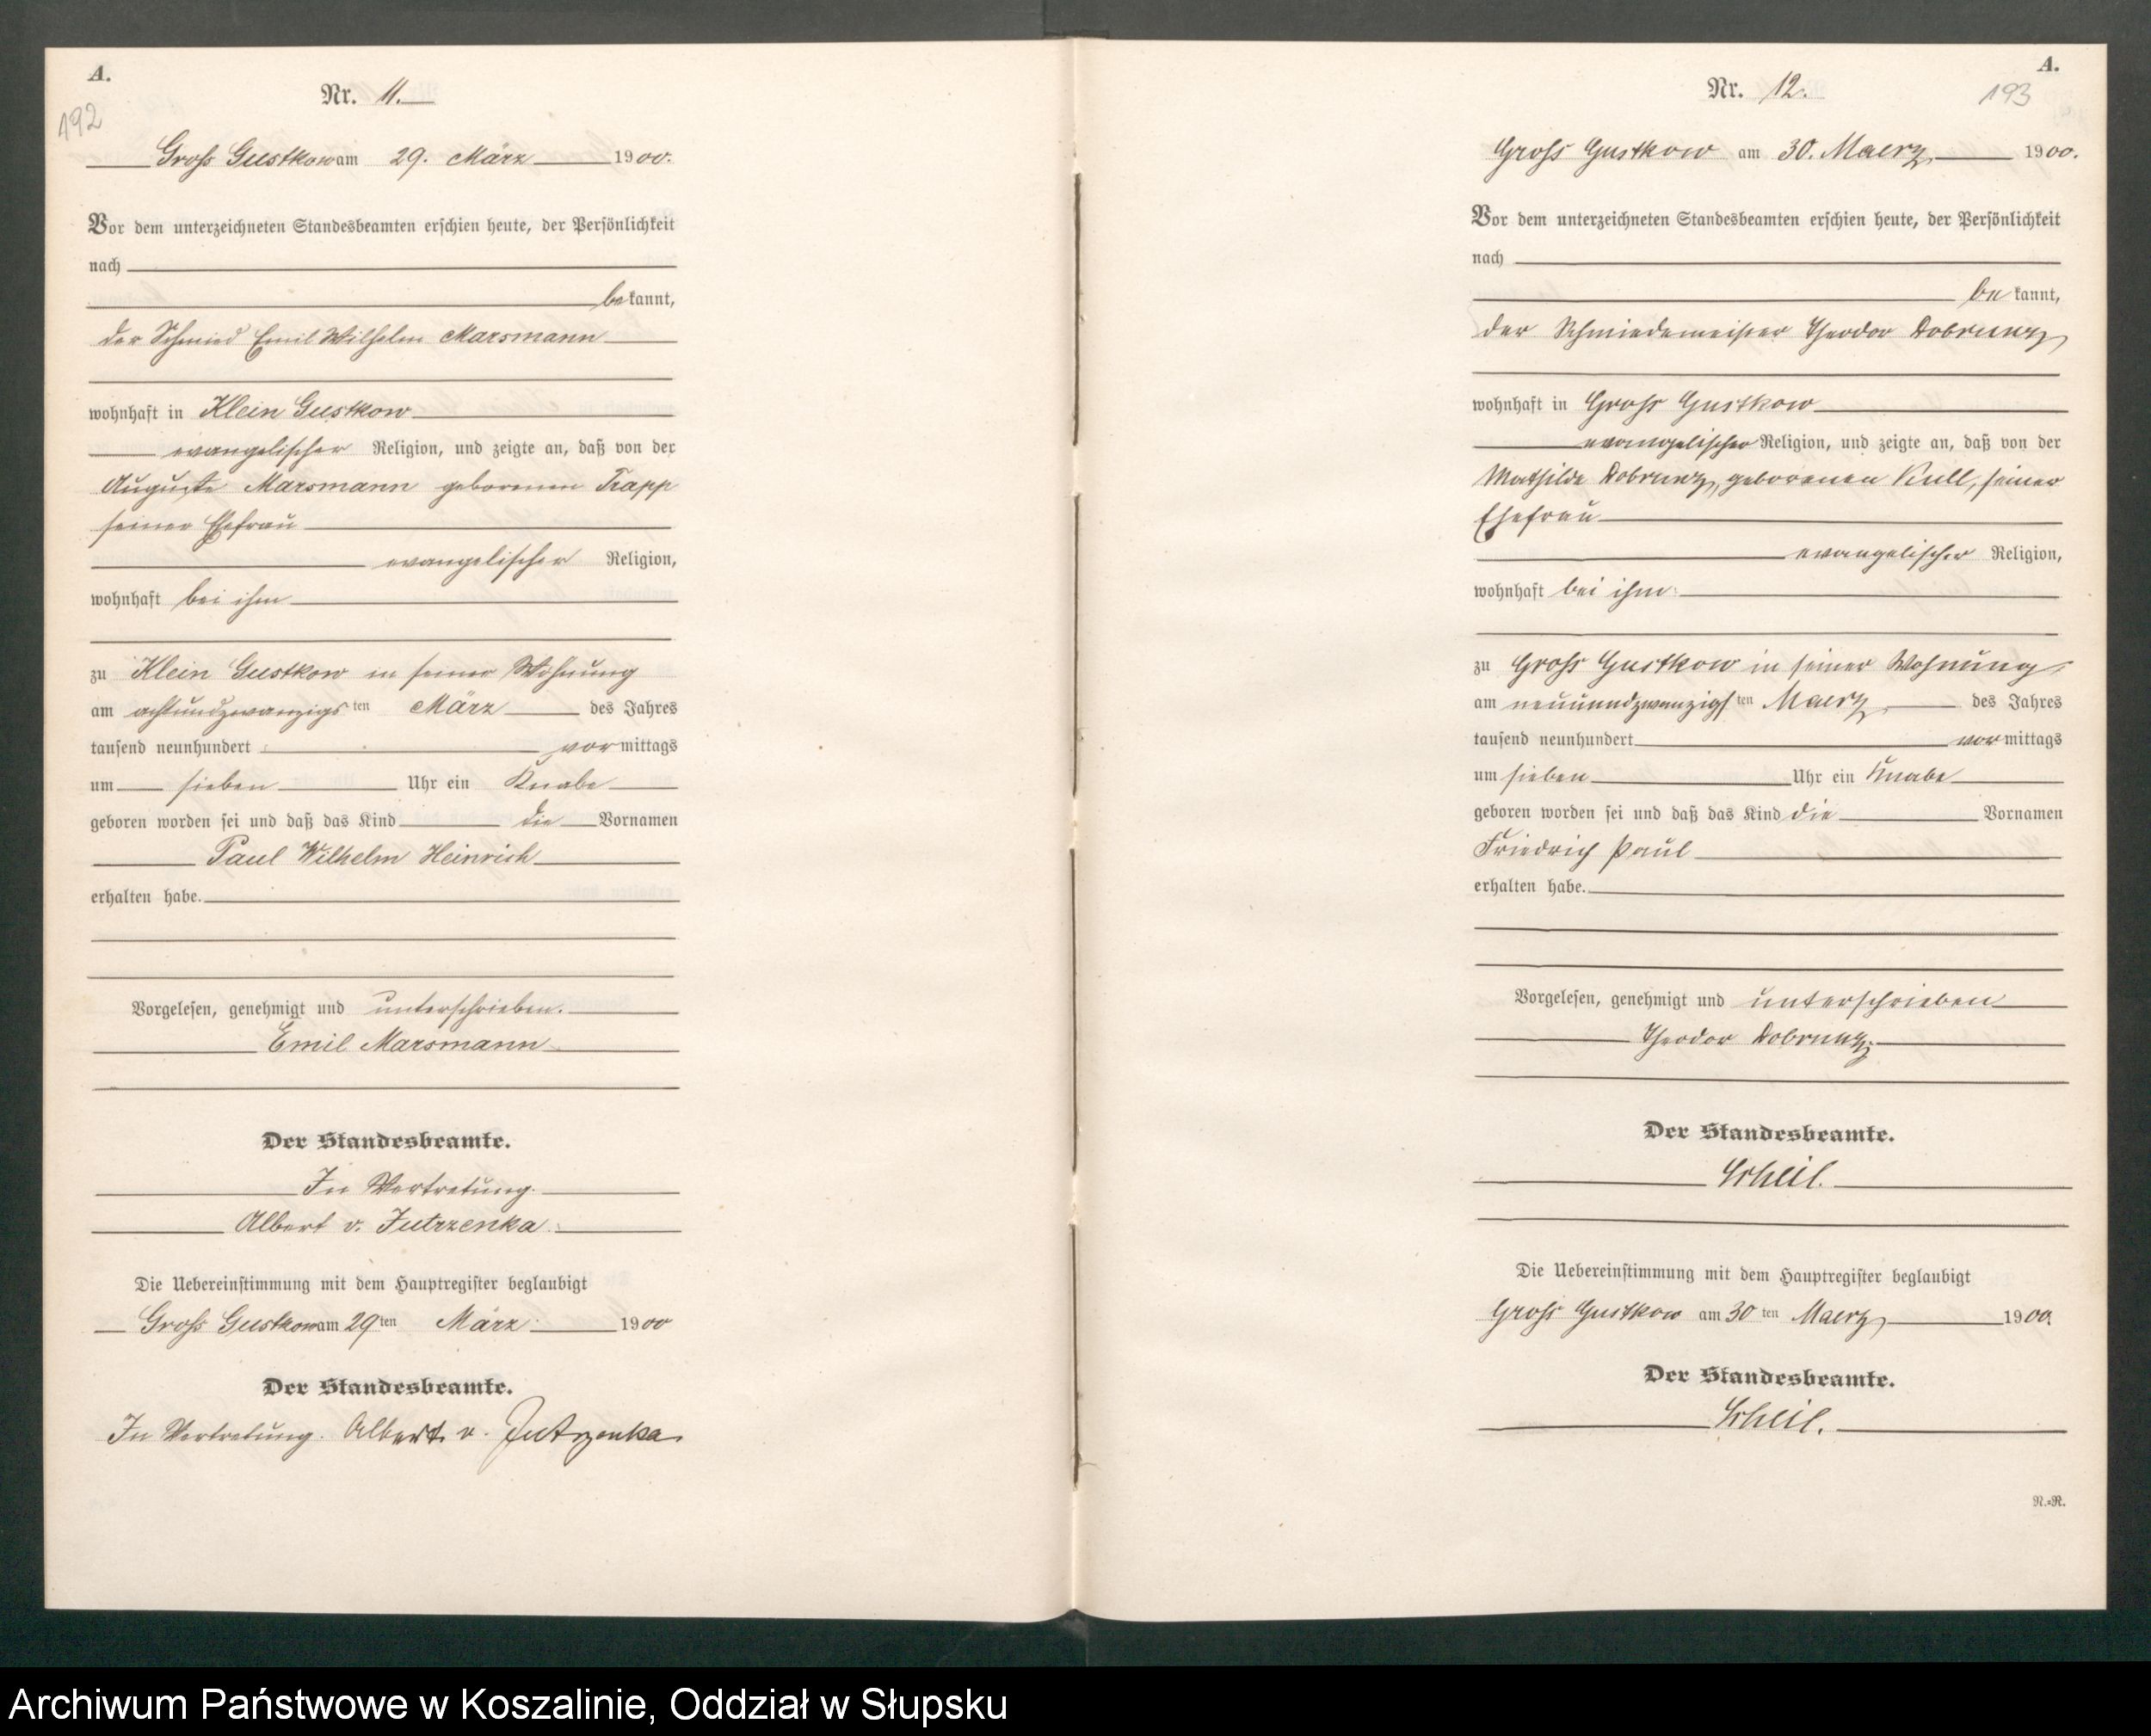 A.
192
Nr. 11.
Groß Gustkow am 29. März 1900.
Vor dem unterzeichneten Standesbeamten erschien heute, der Persönlichkeit
nach
bekannt,
der Schmied Emil Wilhelm Marsmann
wohnhaft in Klein Gustkow
evangelischer Religion, und zeigte an, daß von der
Auguste Marsmann geborenen Trapp
seiner Ehefrau
evangelischer Religion,
wohnhaft bei ihm
zu Klein Gustkow in seiner Wohnung
am achtundzwanzigsten März des Jahres
tausend neunhundert vormittags
um sieben Uhr ein Knabe
geboren worden sei und daß das Kind die Vornamen
Paul Wilhelm Heinrich
erhalten habe.
Vorgelesen, genehmigt und unterschrieben.
Emil Marsmann
Der Standesbeamte.
In Vertretung.
Albert v. Jutrzenka.
Die Uebereinstimmung mit dem Hauptregister beglaubigt
Groß Gustkow am 29ten März 1900
Der Standesbeamte.
In Vertretung. Albert v. Jutrzenka.
A.
193
Nr. 12.
Groß Gustkow am 30. Maerz 1900.
Vor dem unterzeichneten Standesbeamten erschien heute, der Persönlichkeit
nach
bekannt,
der Schmiedemeister Theodor Dobrunz
wohnhaft in Groß Gustkow
evangelischer Religion, und zeigte an, daß von der
Mathilde Dobrunz, geborenen Kull, seiner
Ehefrau
evangelischer Religion,
wohnhaft bei ihm
zu Groß Gustkow in seiner Wohnung,
am neunundzwanzigsten Maerz des Jahres
tausend neunhundert vormittags
um sieben Uhr ein Knabe
geboren worden sei und daß das Kind die Vornamen
Friedrich Paul
erhalten habe.
Vorgelesen, genehmigt und unterschrieben
Theodor Dobrunz.
Der Standesbeamte.
Scheil.
Die Uebereinstimmung mit dem Hauptregister beglaubigt
Groß Gustkow am 30ten Maerz 1900.
Der Standesbeamte.
Scheil.
N.=R.
Archiwum Państwowe w Koszalinie, Oddział w Słupsku